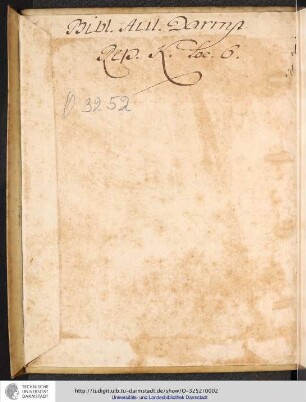 Bibl. Aul. Darmst.
Rep. K. Loc. 6.
O. 3252
TECHNISCHE
UNIVERSITÄT
DARMSTADT
http://tudigit.ulb.tu-darmstadt.de/show/O-3252/0002
Universitäts- und Landesbibliothek Darmstadt